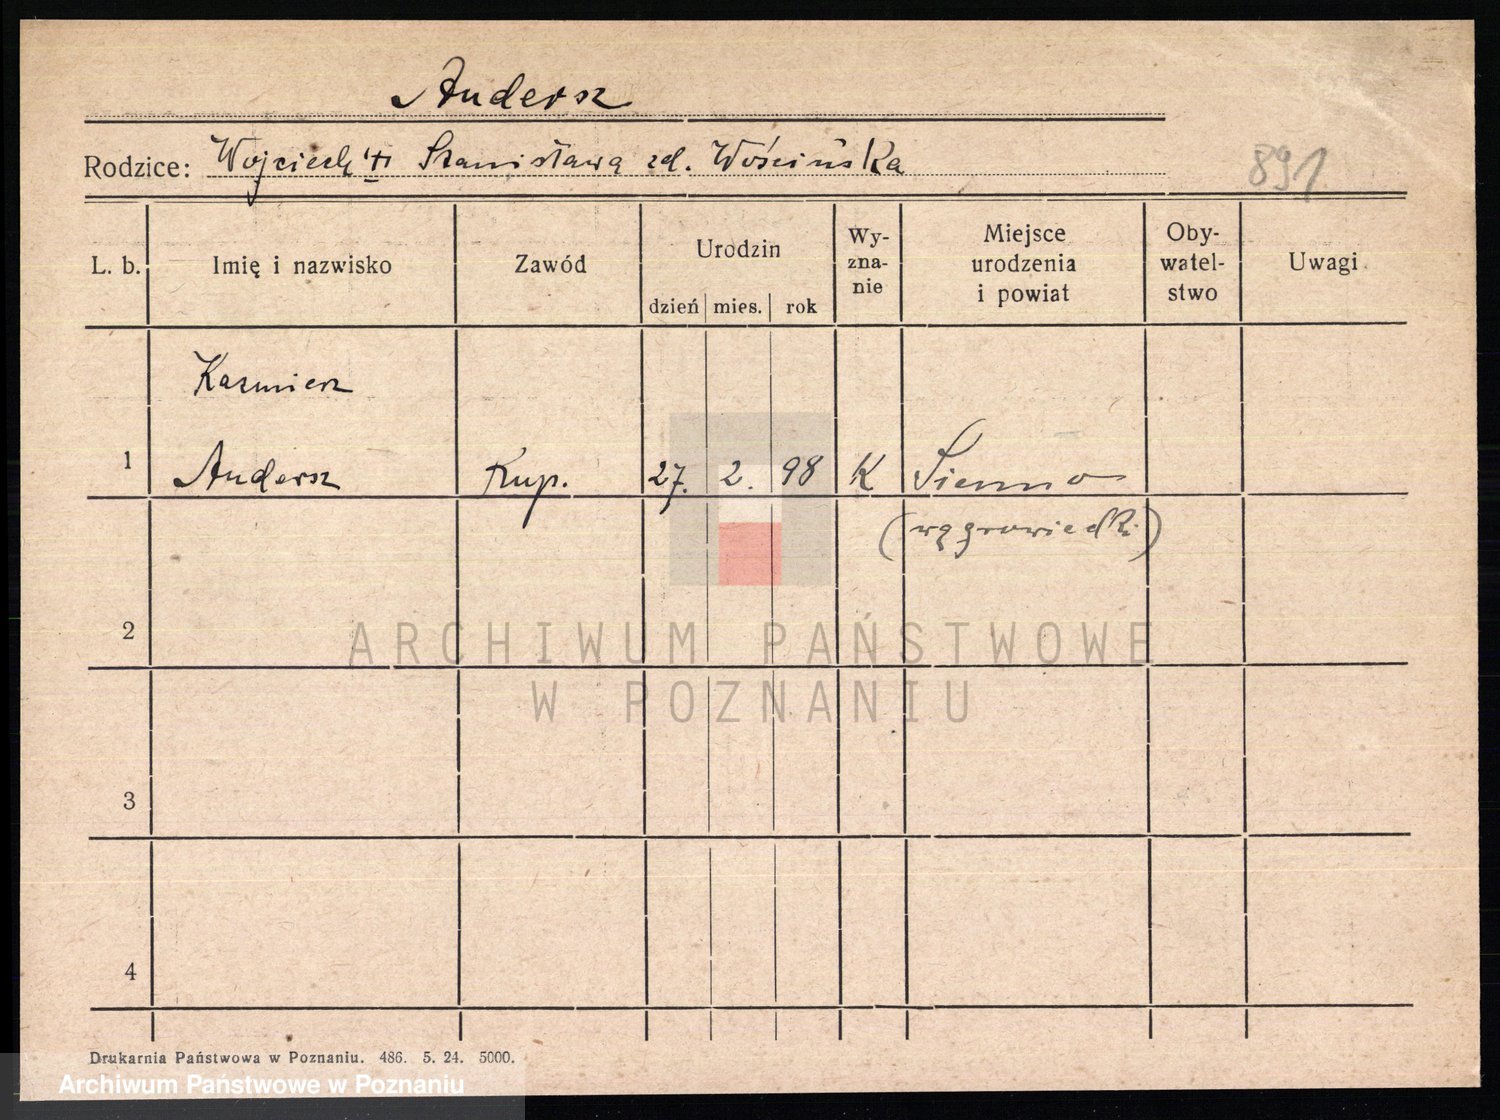 Andersz
Rodzice: Wojciech i Stanisława zd. Wościńska
891
L. b. Imię i nazwisko Zawód Urodzin dzień mies. rok Wy-zna-nie Miejsce urodzenia i powiat Oby-watel-stwo Uwagi
Kazmierz
1 Andersz Kup. 27. 2. 98 K Sienno
(wągrowiecki)
2
ARCHIWUM PAŃSTWOWE
W POZNANIU
3
4
Drukarnia Państwowa w Poznaniu. 486. 5. 24. 5000.
Archiwum Państwowe w Poznaniu